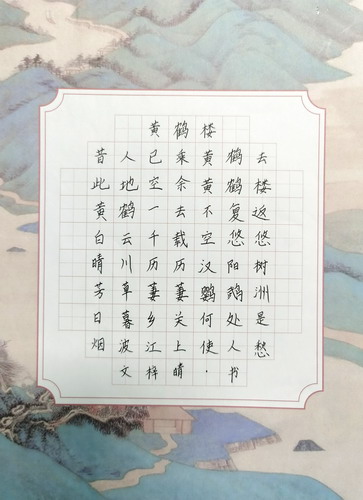 黄鹤楼
昔人已乘黄鹤去
此地空余黄鹤楼
黄鹤一去不复返
白云千载空悠悠
晴川历历汉阳树
芳草萋萋鹦鹉洲
日暮乡关何处是
烟波江上使人愁
文梓晴·书